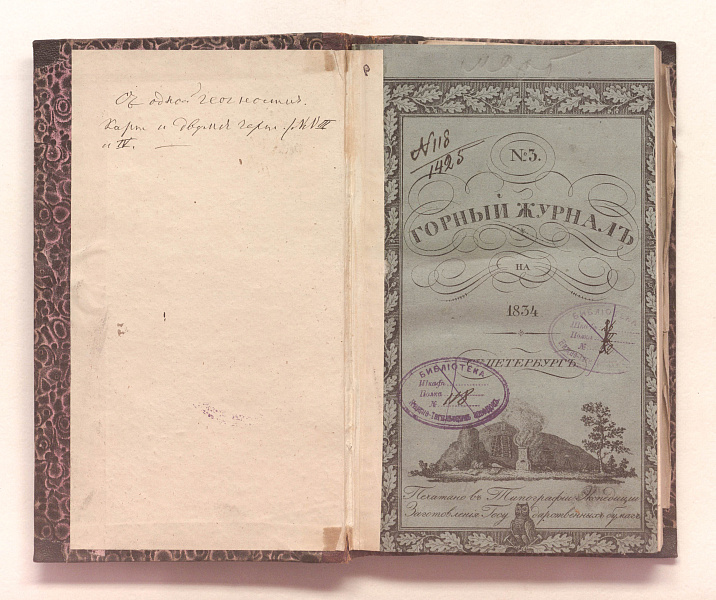 Съ одной геогностич.
карт. и двумя черт. №№ III
и IV.
№ 118
1425
№ 3.
ГОРНЫЙ ЖУРНАЛЪ
НА
1834
С. ПЕТЕРБУРГЪ.
БИБЛІОТЕКА
Шкафъ
Полка
№ 118
БИБЛІОТЕКА
Полка
№
Печатано въ Типографіи Экспедиціи
Заготовленія Государственныхъ бумагъ